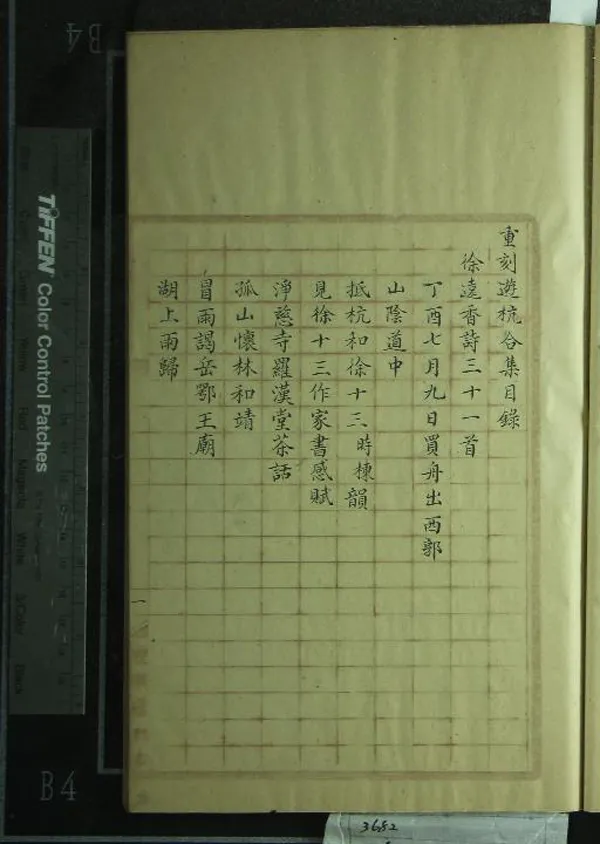 重刻遊杭合集目錄
徐遠香詩三十一首
丁酉七月九日買舟出西郭
山陰道中
抵杭和徐十三時棟韻
見徐十三作家書感賦
淨慈寺羅漢堂茶話
孤山懷林和靖
冒雨謁岳鄂王廟
湖上雨歸
一
B4
TIFFEN Color Control Patches
B4
3682